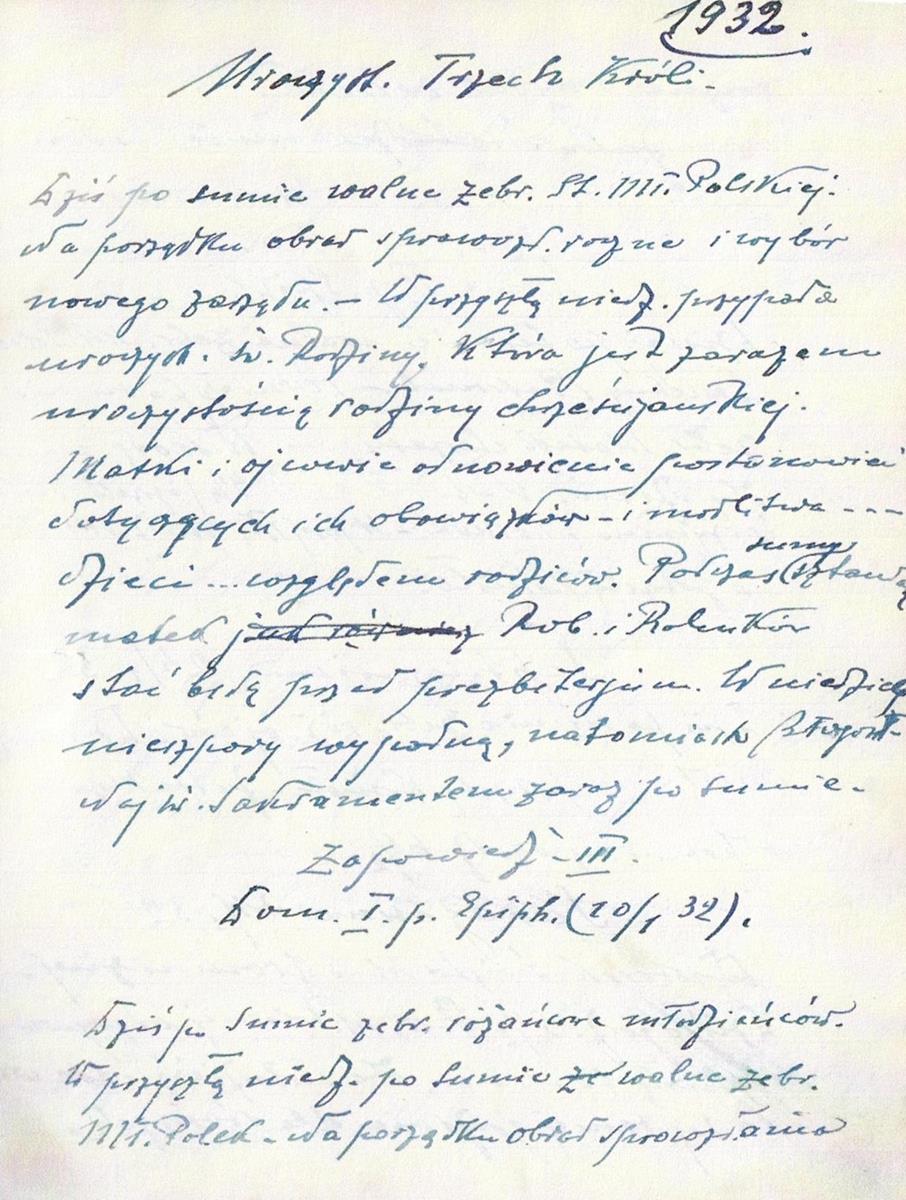 1932.
Uroczyst. Trzech Króli.
Dziś po sumie walne zebr. St. Mł. Polskiej.
Na porządku obrad sprawozd. roczne i wybór
nowego zarządu. – W przyszłą niedz. przypada
uroczyst. św. Rodziny, która jest zarazem
uroczystością rodziny chrześcijańskiej.
Matki i ojcowie odnowienie postanowień
dotyczących ich obowiązków – i modlitwa ---
dzieci ... względem rodziców. Podczas sumy
matek jak również Rob. i Robotników
stać będą przed prezbiterjum. W niedzielę
nieszpory wypadną, natomiast błogosł.
Najśw. Sakramentem zaraz po sumie.
Zapowiedź – III.
Dom. I. p. Epiph. (10/1 32).
Dziś p. sumie zebr. różańcowe młodzieńców.
W przyszłą niedz. po sumie ze walne zebr.
Mł. Polek – Na porządku obrad sprawozdania